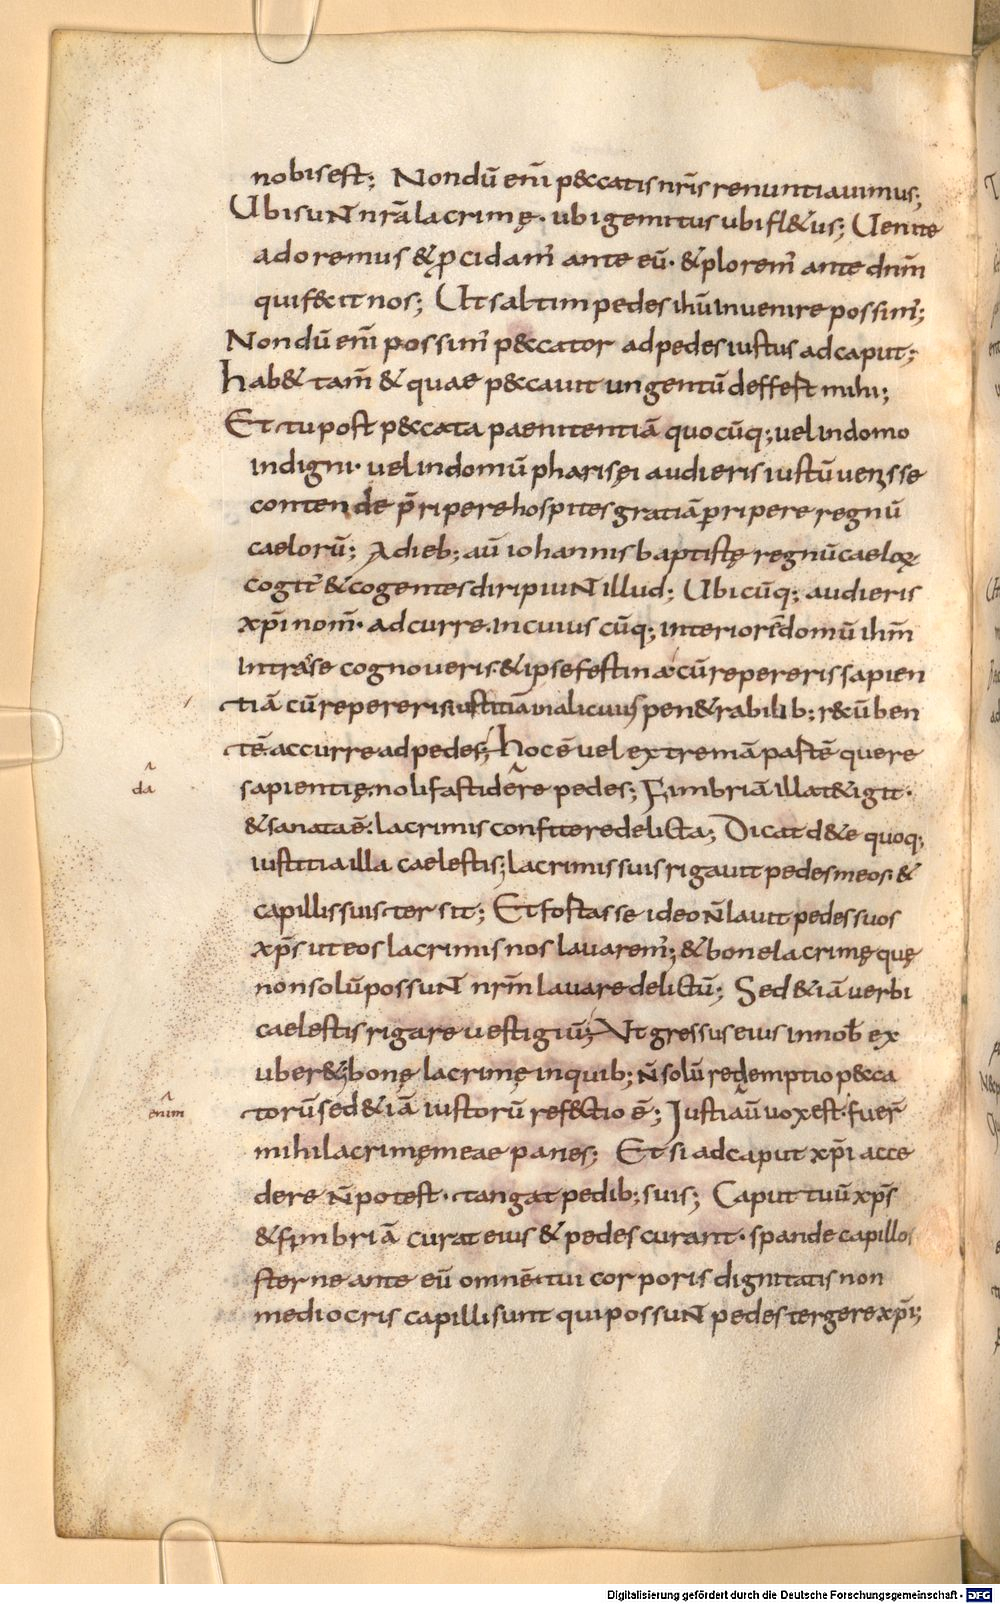 nobis est; Nondū enī p&ccatis nr̄is renuntiauimus;
Ubi suNt nrā lacrimę· ubi gemitus ubi fl&us; Uenite
adoremus & p̄cidam' ante eū· & plorem' ante dnm̄
qui fecit nos; Ut saltim pedes ihū inuenire possim';
Nondū enī possim' p&ccator ad pedes iustus ad caput;
hab& tam̄ & quae p&cauit ungentū deffest mihi;
Et tu post p&ccata paenitentiā quocūq; uel in domo
indigni· uel in domū pharisęi audieris iustū uenisse
contende p̄ripere hospites gratiā p̄ripere regnū
caelorū; A dieb; aū iohannis baptistę regnū caeloꝝ
cogit' & cogentes diripiuNt illud; Ubicūq; audieris
xp̄i nom̄· adcurre. in cuiuscūq; interiorē domū ihm̄
intrasse cognoueris· & ipse festina cū repereris sapien
tiā cū repereris iustitiā in alicuius pen&rabilib; r&ūben
tē accurre ad pedes; hoc ē uel extremā partē quere
sapientię. noli fastidere pedes; Fimbriā illa t&igit·
da
& sanata ē: lacrimis confitere delicta; Dicat d& e quoq;
iustitia illa caelestis; lacrimis suis rigauit pedes meos· &
capillis suis tersit; Et fortasse ideo n̄ lauit pedes suos
xp̄s ut eos lacrimis nos lauarem'; & bone lacrimę quę
non solū possuNt nrm̄ lauare delictū; Sed &iā uerbi
caelestis rigare uestigiū; Ut gressus eius in nob̄ ex
uber&; bonę lacrimę in quib; n̄ solū redemptio p&cca
torū sed &iā iustorū refectio ē; Iusti aū uox est· fuer̄
enim
mihi lacrimę meae panes; Et si ad caput xp̄i acce
dere n̄ potest· tangat pedib; suis; Caput tuū xp̄s
& fimbriā curat eius & pedes curant· spande capillos
sterne ante eū omnē tui corporis dignitatis non
mediocris capilli sunt qui possuNt pedes tergere xp̄i;
Digitalisierung gefördert durch die Deutsche Forschungsgemeinschaft - DFG